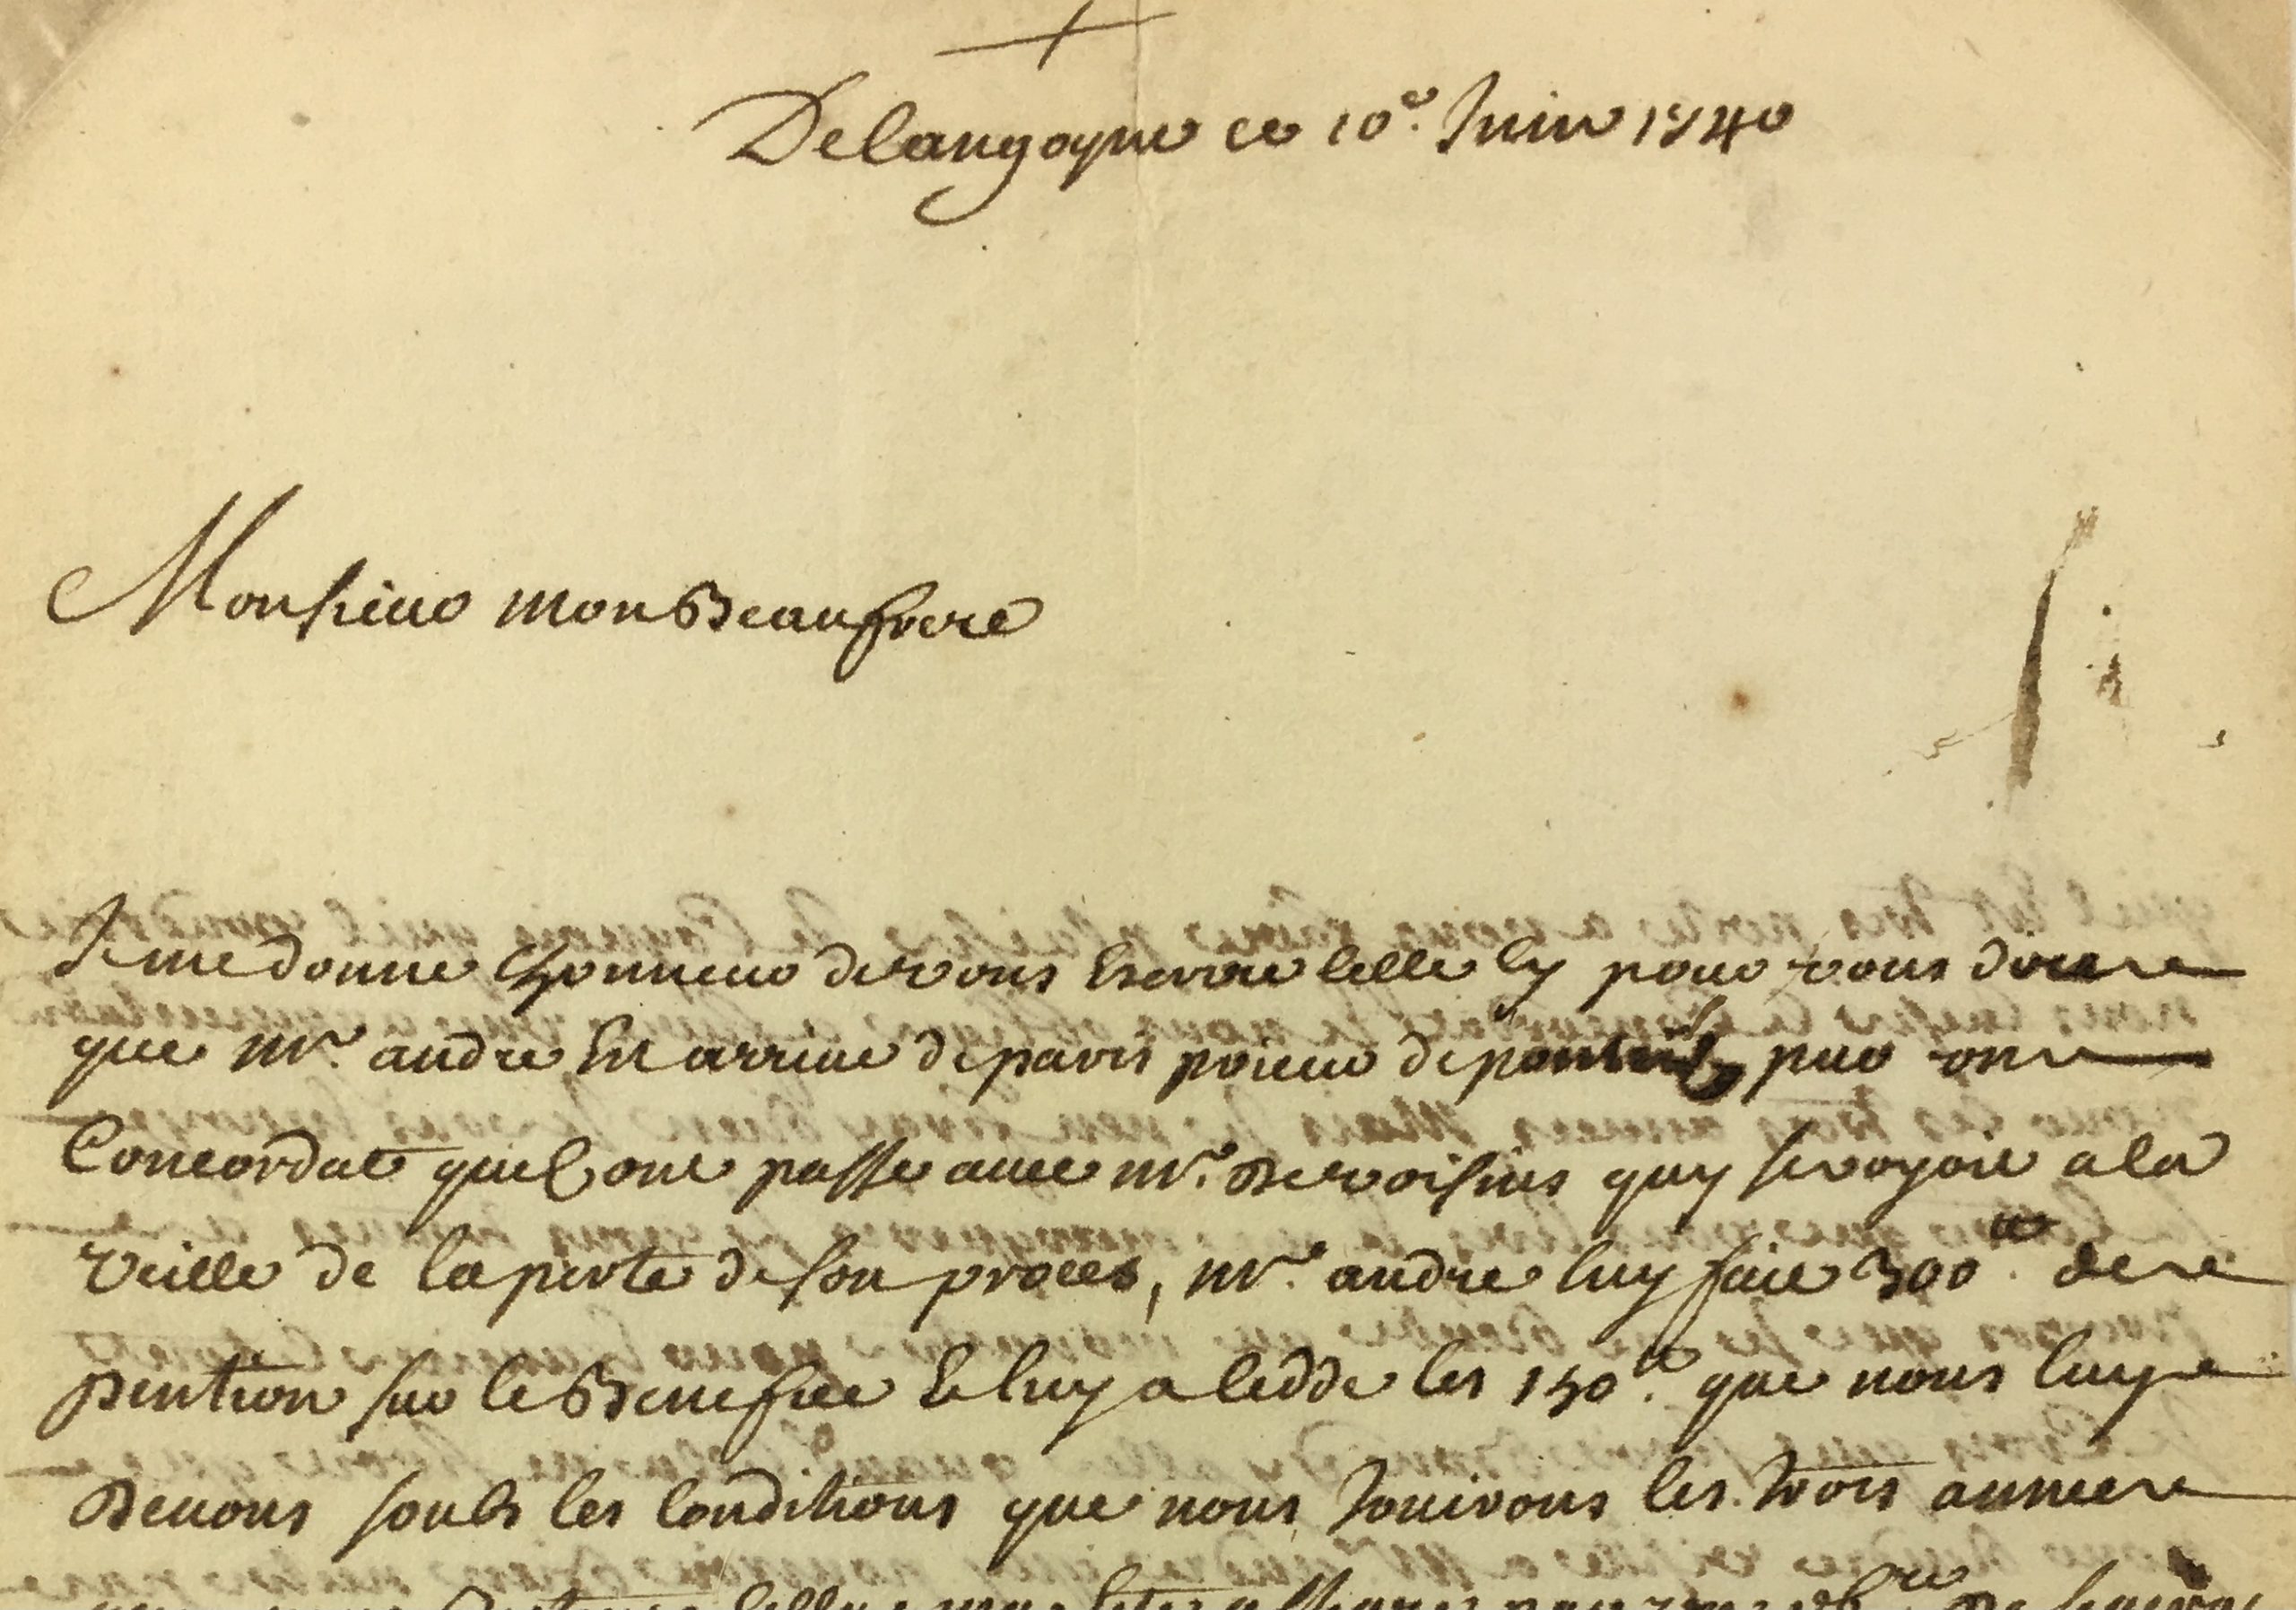 Delangogne ce 10e. Juin 1740
Monsieur mon Beaufrere
Je me donne Lhonneur de vous Escrire celle cy pour vous dire
que mr. andre Est arrive de paris prieur de par un
Concordat quil ont passe avec mr. Devoisins quy se voyoit a la
veille de la perte de son proces, mr. andre luy fait 300ll. de
pention sur le Benefice Et luy a cedde les 150ll. que nous luy
Devons soubs les conditions que nous Jouirons les trois annees